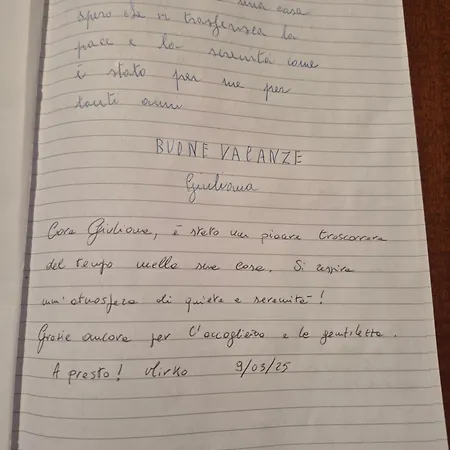 una casa
spero che vi trasferisca la
pace e la serenità come
è stato per me per
tanti anni
BUONE VACANZE
Giuliana
Cara Giuliana, è stato un piacere trascorrere
del tempo nella sua casa. Si respira
un'atmosfera di quiete e serenità!
Grazie ancora per l'accoglienza e la gentilezza.
A presto! Mirko 9/03/25